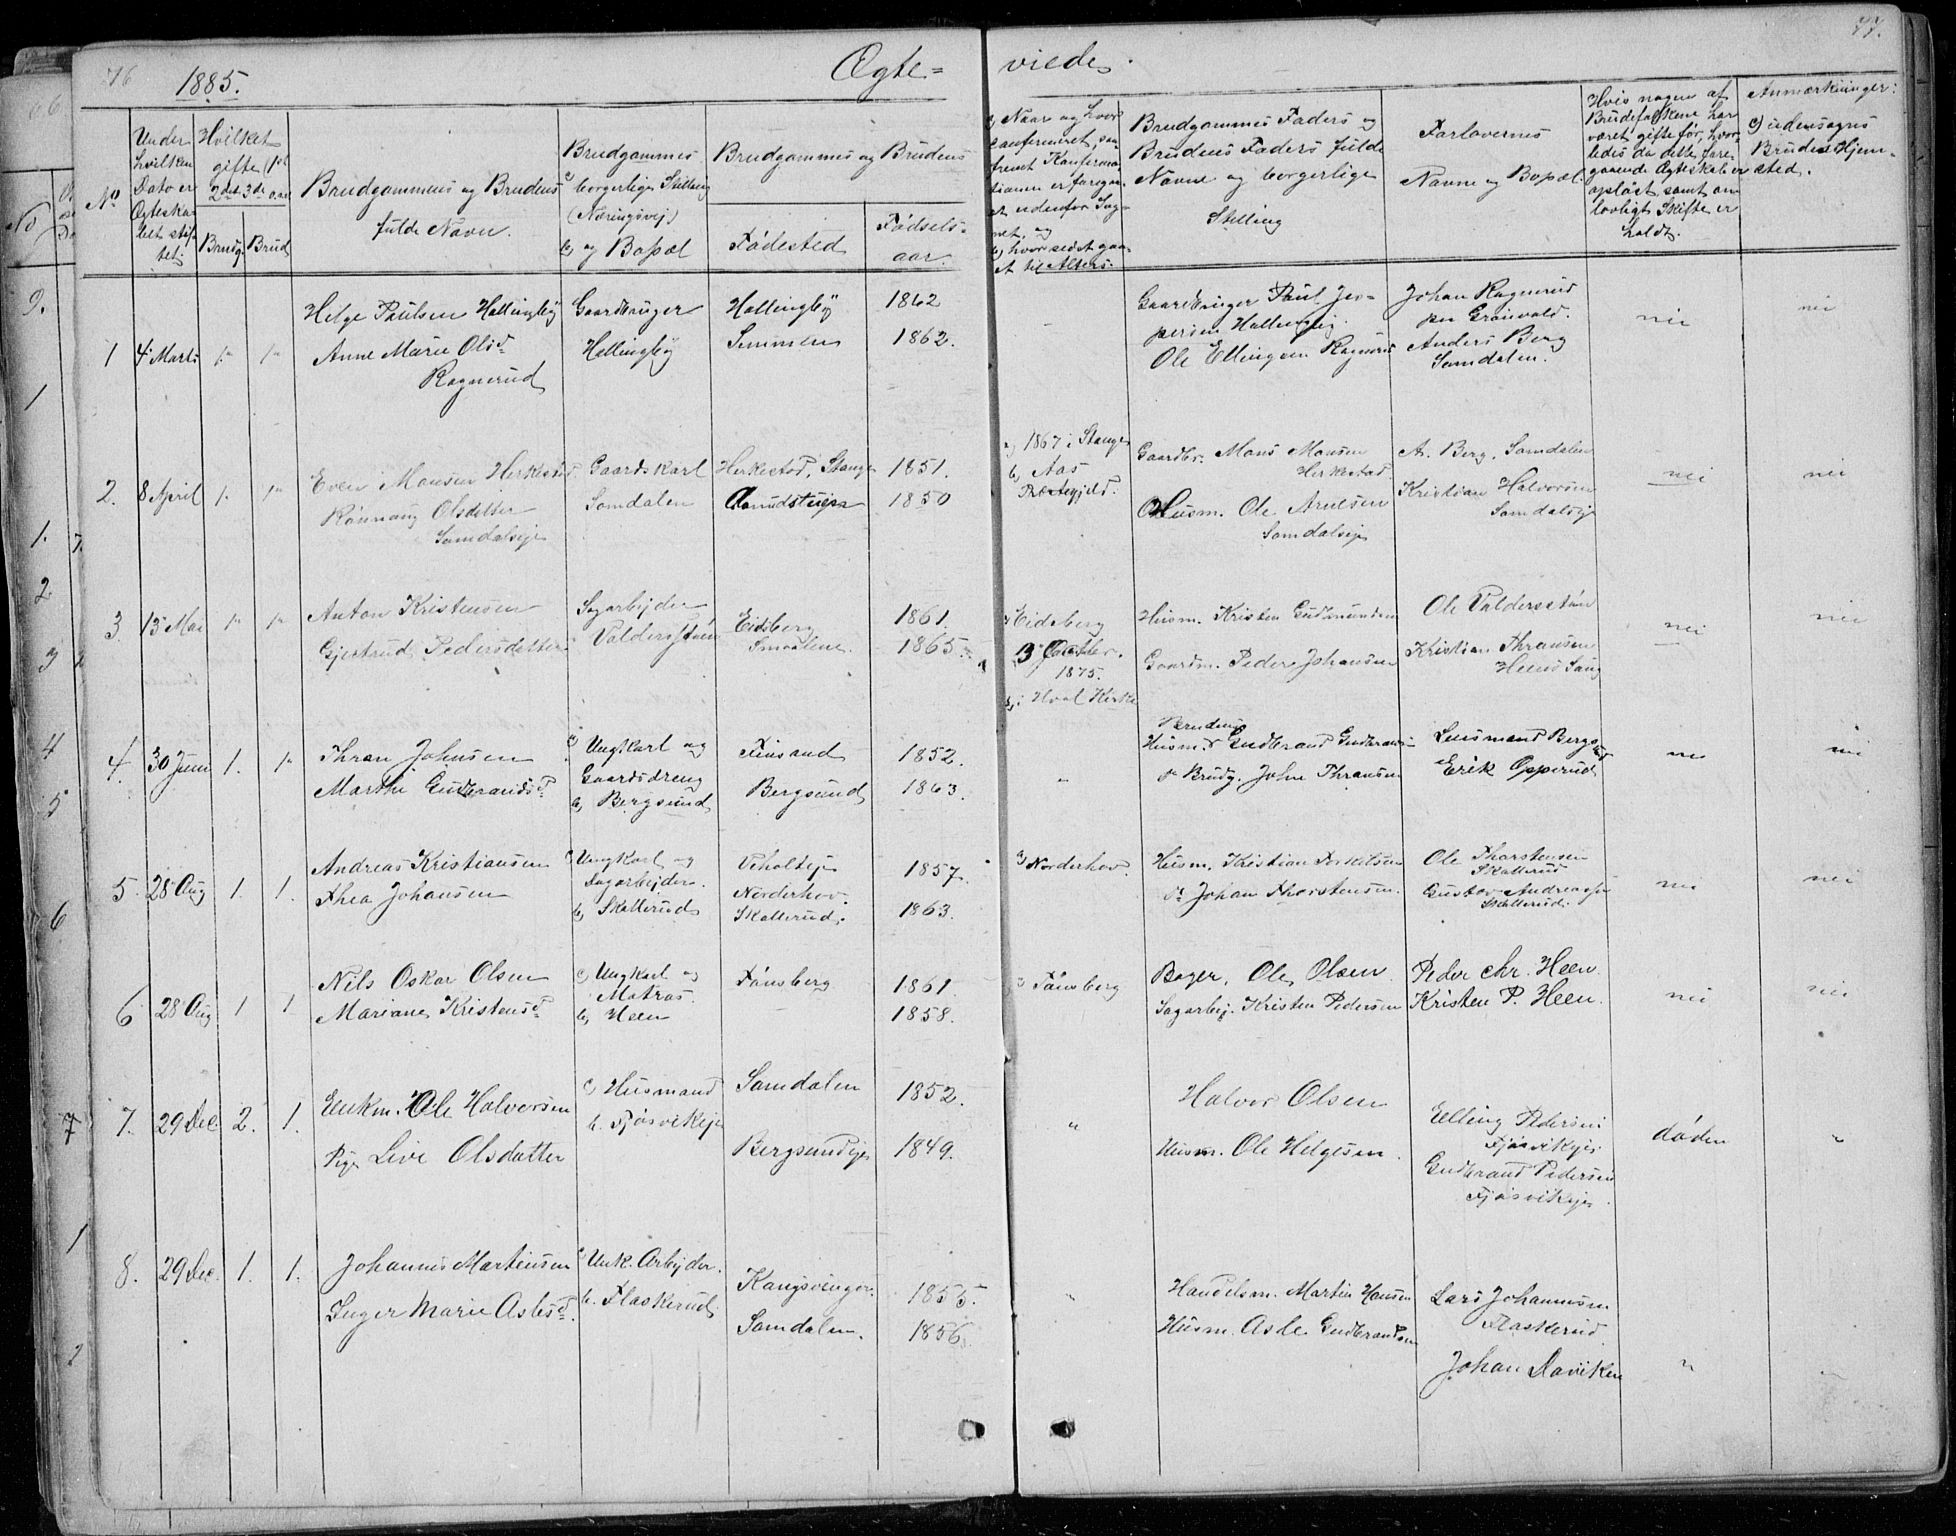 76
1885.
Ægte=
viede.
77.
No
Under hvilken Dato er Ægteskabet stiftet.
Hvilket gifte (1ste 2det 3die o.s.v.
Brudg.
Brud
Brudgommens og Brudens fulde Navn.
Brudgommens
a) borgerlige Stilling (Næringsvej)
b) og Bopæl
Brudgommens og Brudens
Fødested
Fødselsaar.
a) Naar og hvor
og
b) hvor sidst gaaet til Alters.
Brudgommens Faders og Brudens Faders fulde Navne og borgerlige Stilling
Forlovernes Navne og Bopæl.
Hvis nogen af Brudefolkene har været gifte før, hvorledes da dette foregaaende Ægteskab er opløst samt om lovligt Skifte er holdt.
Anmærkninger:
Brudens Hjemsted.
1 4 Marts 1ste 1ste
Helge Paulsen Hallingby
Anne Marie Olsd.
Ragnerud
Gaardbruger
Hallingby
Hallingby 1862
Semmen 1862.
Gaardbruger Paul Jespersen Hallingby.
Ole Ellingsen Ragnerud
Johan Ragnerud
per Grönvold.
Anders Berg
Somdalen.
nei
nei
2. 8 April 1. 1
Even Monsen Herkestad
Rönnaug Olsdatter
Somdalseje
Gaardskarl
Somdalen
Herkestad, Stange 1851.
1850
a) 1867 i Stange
b) Aas Præstegjeld.
Gaardbr. Mons Monsen
Herkestad
Husm. Ole Arnesen
Somdalseje
A. Berg, Somdalen
Kristian Halvorsen
Somdalseje
nei
nei
3. 13 Mai 1 1
Anton Kristensen
Gjertrud Pedersdatter
Sagarbejder
Valdersstøen
Eidsberg
Smaalene.
1861.
1865
a) Eidsberg
3 Octbr.
1875.
b) i Hval Kirke
Husm. Kristen Gudmundsen
Gaardm. Peder Johansen
Ole Valdersstøen
Kristian Thransen
Heens Saug
nei
nei
4. 30 Juni 1. 1
Thran Johnsen
Marthe Gudbrandsd.
a) Ungkarl og
Gaardsdreng
b) Bergsund
Finsand 1852.
Bergsund 1863.
"
Brudens
Husm. Gudbrand Gudbrands
Brudg. John Thransen
Lensmand Bergsund
Erik Opperud
nei
nei
5. 28 Aug 1. 1.
Andreas Kristiansen
Thea Johansen
a) Ungkarl og
Dagarbejder.
b) Skollerud
Veholteje
Norderhov.
Skollerud.
1857.
1863.
a) Norderhov.
Husm. Kristian Askelsen
Johan Thorstensen.
Ole Thorstensen
Skollerud
Gustav Andreassen
Skollerud.
nei
nei
6 28 Aug 1 1
Nils Oskar Olsen
Mariane Kristensd.
a) Ungkarl og
Matros.
b) Heen
Tönsberg 1861.
1858.
a) Tönsberg
Bager. Ole Olsen
Sagarbej. Kristen Pedersen
Peder Chr. Heen
Kristen P. Heen.
nei
nei
7. 29 Dec 2. 1.
Enkm. Ole Halvorsen
Pige Live Olsdatter
a) Husmand
b. Fjösvikeje
Somdalen 1852.
Bergsundeje 1849.
"
Halvor Olsen
Husm. Ole Helgesen
Elling Pedersen
Fjösvikeje
Gudbrand Pedersen
Fjösvikeje
döden
"
8. 29 Dec. 1. 1.
Johannes Martensen
Inger Marie Aslesd.
a) Unk. Arbejder.
b. Flaskerud
Kongsvinger. 1855.
Somdalen. 1856.
"
Handelsm. Martin Hansen
Husm. Asle Gudbrandsen
Lars Johannesen
Flaskerud
Johan Daviken
"
"